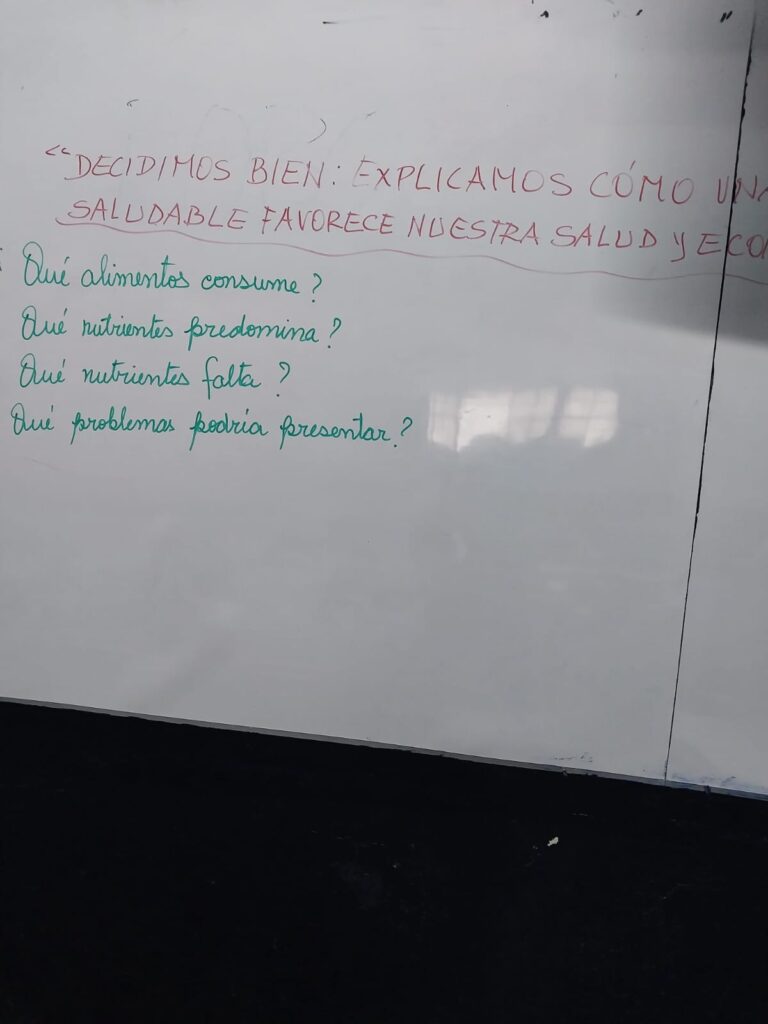 “DECIDIMOS BIEN: EXPLICAMOS CÓMO UNA
SALUDABLE FAVORECE NUESTRA SALUD Y ECO
Qué alimentos consume?
Qué nutrientes predomina?
Qué nutrientes falta?
Qué problemas podría presentar?